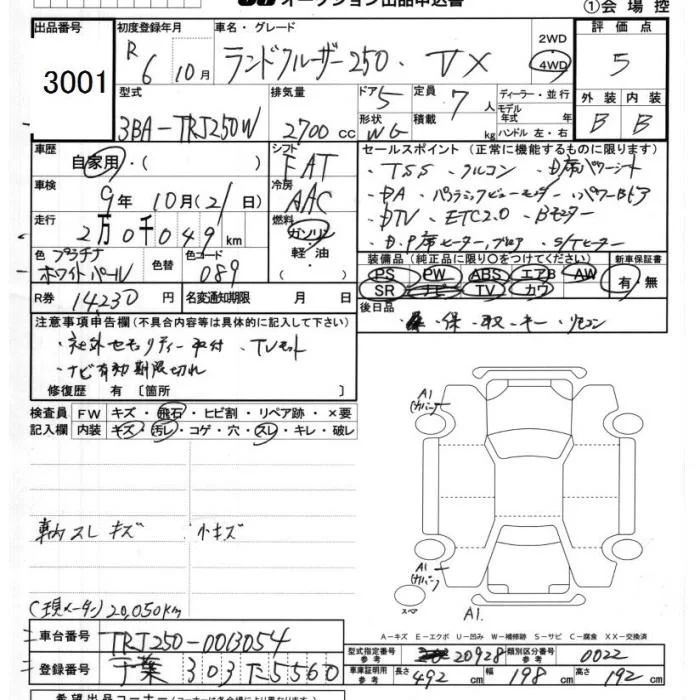 オークション出品申込書 ①会場控
出品番号 初度登録年月 車名・グレード 2WD 評価点
3001 R6 10月 ランドクルーザー250・VX 4WD 5
型式 排気量 ドア 5 定員 7人 ディーラー・並行 外装 内装
3BA-TRJ250W 2700cc 形状 WG 積載 kg モデル年式 年式 ハンドル 左・右 B B
車歴 自家用・( ) シフト FAT セールスポイント(正常に機能するものに限ります)
・TSS・クルコン・D席パワーシート
車検 9年10月(21日) 冷房 AAC ・BA・パノラミックビューモニター・パワーBドア
走行 2万0千049km 燃料 ガソリン 軽油 ・DTV・ETC2.0・Bモニター
・D.P席ヒーター,エアコン・S/Tヒーター
色 プラチナホワイトパール 色替 色コード 089 装備品(純正品に限り○をつけてください) 新車保証書
PS PW ABS エアB AW 有・無
SR ナビ TV カワ
R券 14,230円 名変通知期限 月 日 後日品
・保・取・キー・リモコン
注意事項申告欄(不具合内容等は具体的に記入して下さい)
・社外セキュリティー取付・TVキット
・ナビ有効期限切れ
修復歴 有〔箇所 〕
検査員 FW キズ・飛石・ヒビ割・リペア跡・×要
記入欄 内装 キズ・汚レ・コゲ・穴・スレ・キレ・破レ
A1
(カバー)
車内スレ キズ 小キズ
A1
(カバー)
スペア
A1.
(現メータ) 20,050km
A-キズ E-エクボ U-凹み W-補修跡 S-サビ C-腐食 XX-交換済
車台番号 TRJ250-0013054
型式指定番号 参考 20928 類別区分番号 参考 0022
登録番号 千葉 303 た 5560
車庫証明用 参考 長さ 492cm 幅 198cm 高さ 192cm
希望出品コーナー